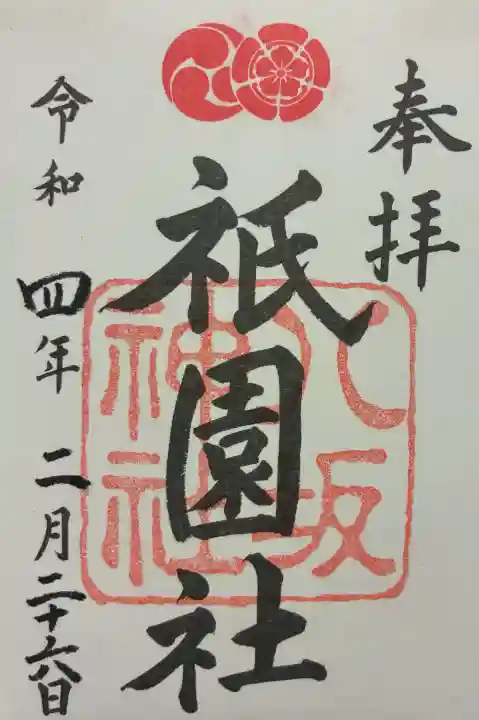 奉拝
祇園社
八坂
神社
令和四年二月二十六日